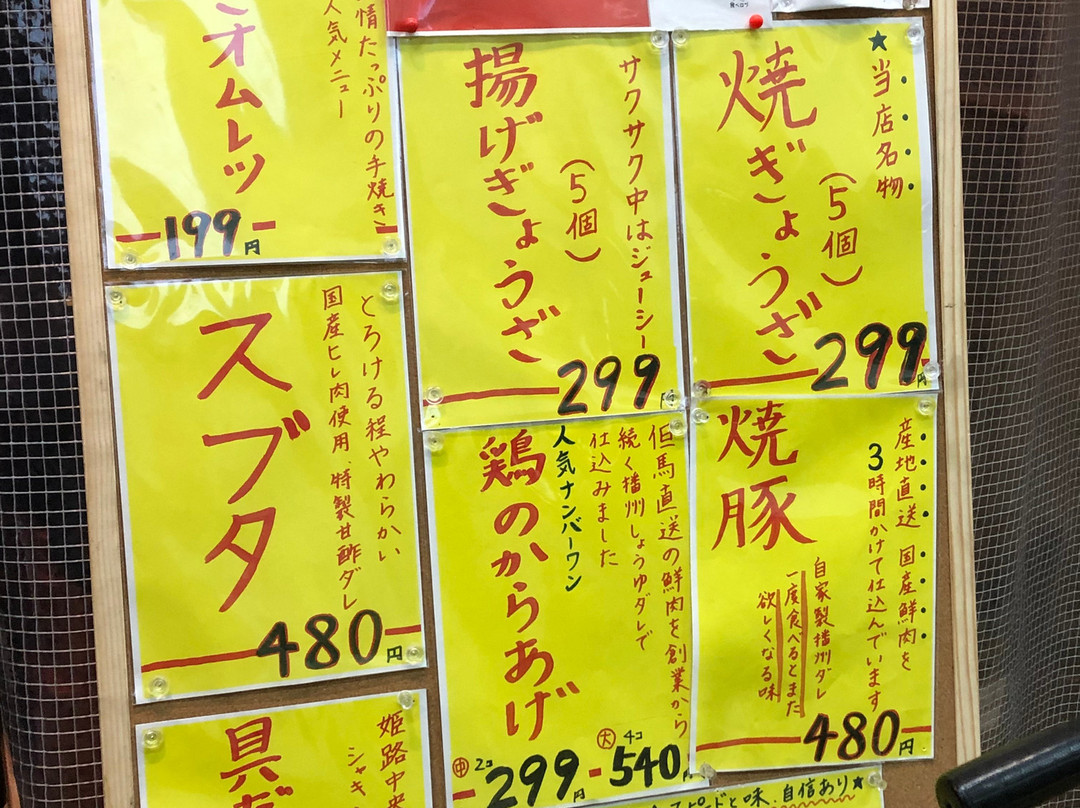 ★当店名物
焼ぎょうざ
(5個)
299円
サクサク中はジューシー
揚げぎょうざ
(5個)
299円
情たっぷりの手焼き
人気メニュー
オムレツ
199円
産地直送 国産鮮肉を
3時間かけて仕込んでいます
焼豚
自家製播州ダレ
一度食べるとまた
欲しくなる味
480円
但馬直送の鮮肉を創業から
続く播州しょうゆダレで
仕込みました
人気ナンバーワン
鶏のからあげ
中 2コ 299円
大 4コ 540円
とろける程やわらかい
国産ヒレ肉使用、特製甘酢ダレ
スブタ
480円
姫路中央
シャキ
具だ
スピードと味、自信あり★